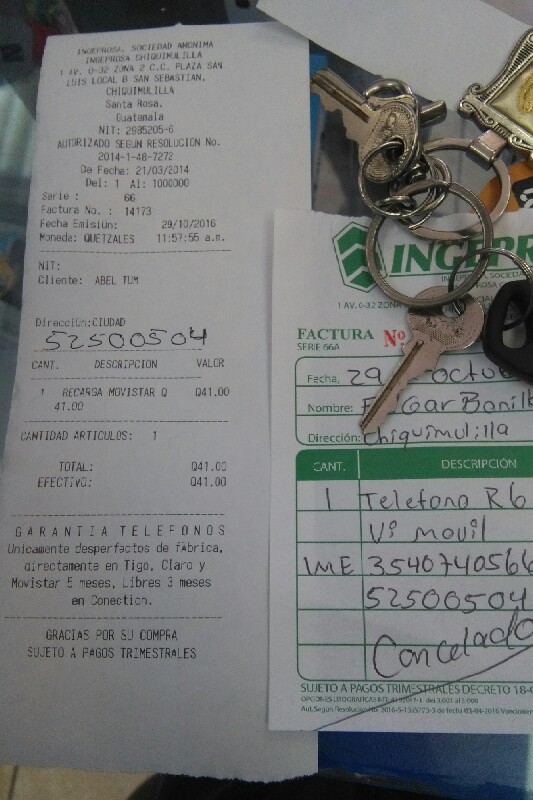 INGEPROSA, SOCIEDAD ANONIMA
INGEPROSA CHIQUIMULILLA
1 AV. 0-32 ZONA 2 C.C. PLAZA SAN
LUIS LOCAL B SAN SEBASTIAN,
CHIQUIMULILLA
Santa Rosa,
Guatemala
NIT: 2985205-6
AUTORIZADO SEGUN RESOLUCION No.
2014-1-48-7272
De Fecha: 21/03/2014
Del: 1 Al: 1000000
Serie : 66
Factura No. : 14173
Fecha Emisión: 29/10/2016
Moneda: QUETZALES 11:57:55 a.m.
NIT:
Cliente: ABEL TUM
Dirección:CIUDAD
52500504
CANT. DESCRIPCION VALOR
1 RECARGA MOVISTAR Q Q41.00
41.00
CANTIDAD ARTICULOS: 1
TOTAL: Q41.00
EFECTIVO: Q41.00
GARANTIA TELEFONOS
Unicamente desperfectos de fábrica,
directamente en Tigo, Claro y
Movistar 5 meses, Libres 3 meses
en Conection.
GRACIAS POR SU COMPRA
SUJETO A PAGOS TRIMESTRALES
INGEPR
INGEPROSA, SOCIEDA
1 AV. 0-32 ZONA
FACTURA No
SERIE 66A
Fecha, 29 octu
Nombre: Edgar Bonill
Dirección: Chiquimulilla
CANT. DESCRIPCIÓN
1 Telefono R6
Vi movil
IME 3540740566
52500504
Cancelado
SUJETO A PAGOS TRIMESTRALES DECRETO 18-0